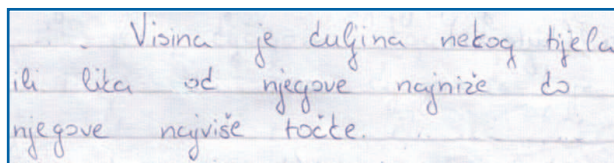 Visina je duljina nekog tijela
ili lika od njegove najniže do
njegove najviše točke.